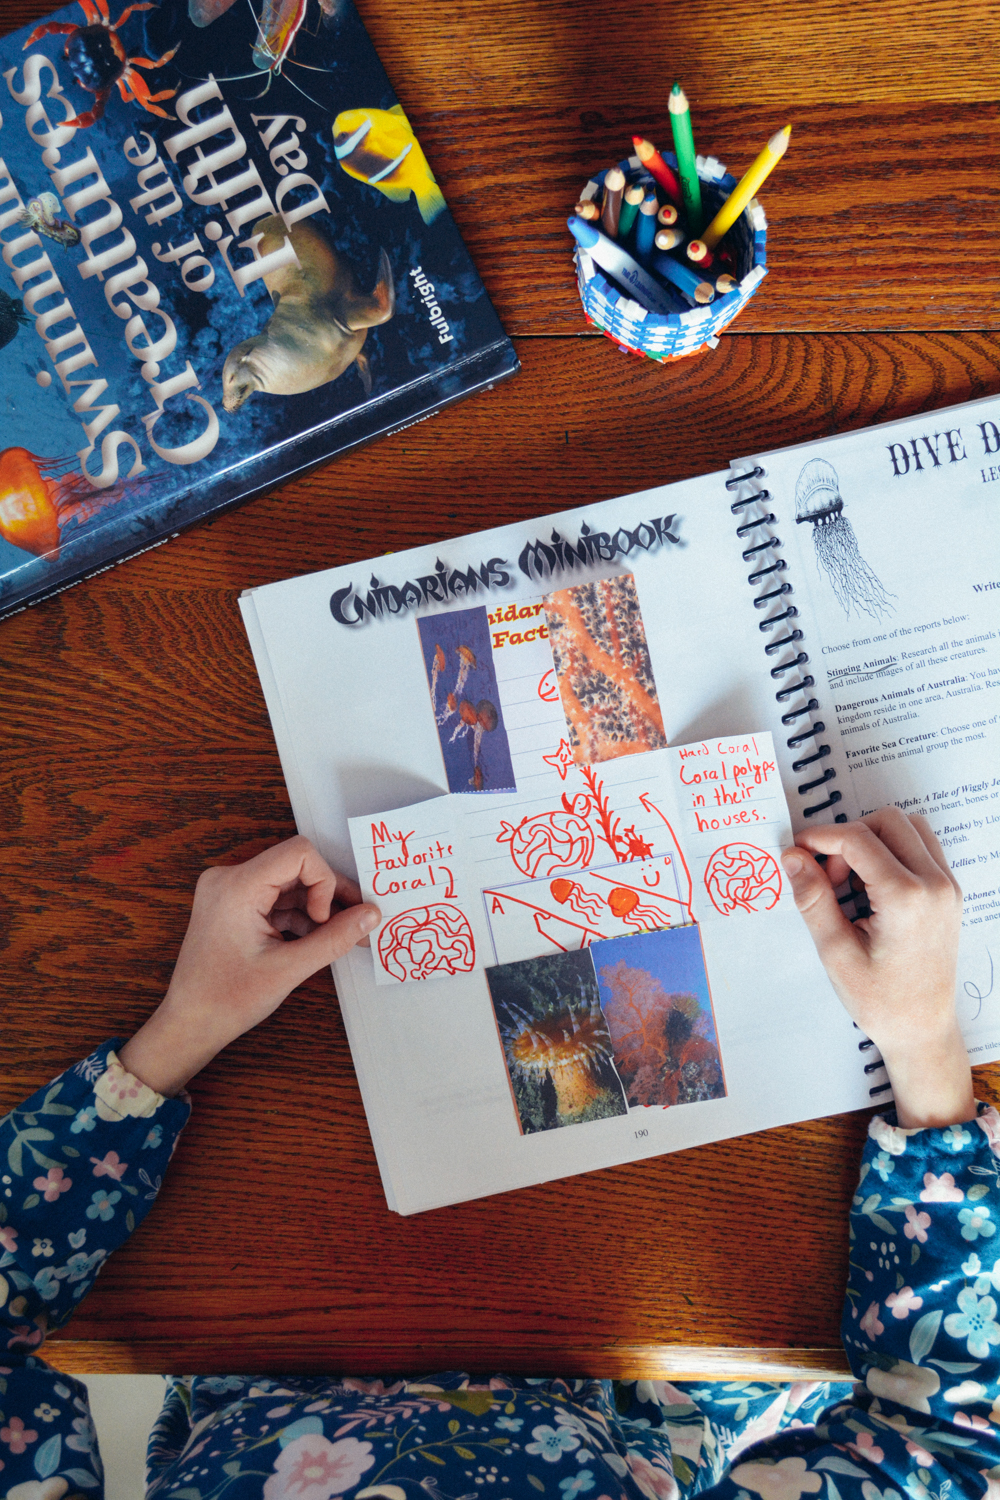 Swimming
Creatures
of the
Fifth
Day
Fulbright
Fulbright
CNIDARIANS MINIBOOK
nidar
Fact
Hard Coral
Coral polyps
in their
houses.
My
Favorite
Coral
A
D
190
DIVE D
LES
Write
Choose from one of the reports below:
Stinging Animals: Research all the animals
and include images of all these creatures.
Dangerous Animals of Australia: You hav
kingdom reside in one area, Australia. Res
animals of Australia.
Favorite Sea Creature: Choose one of
you like this animal group the most.
Jellyfish: A Tale of Wiggly Je
with no heart, bones or
ue Books) by Llo
ellyfish.
Jellies by M
ckbones
or introdu
s, sea ane
some titles